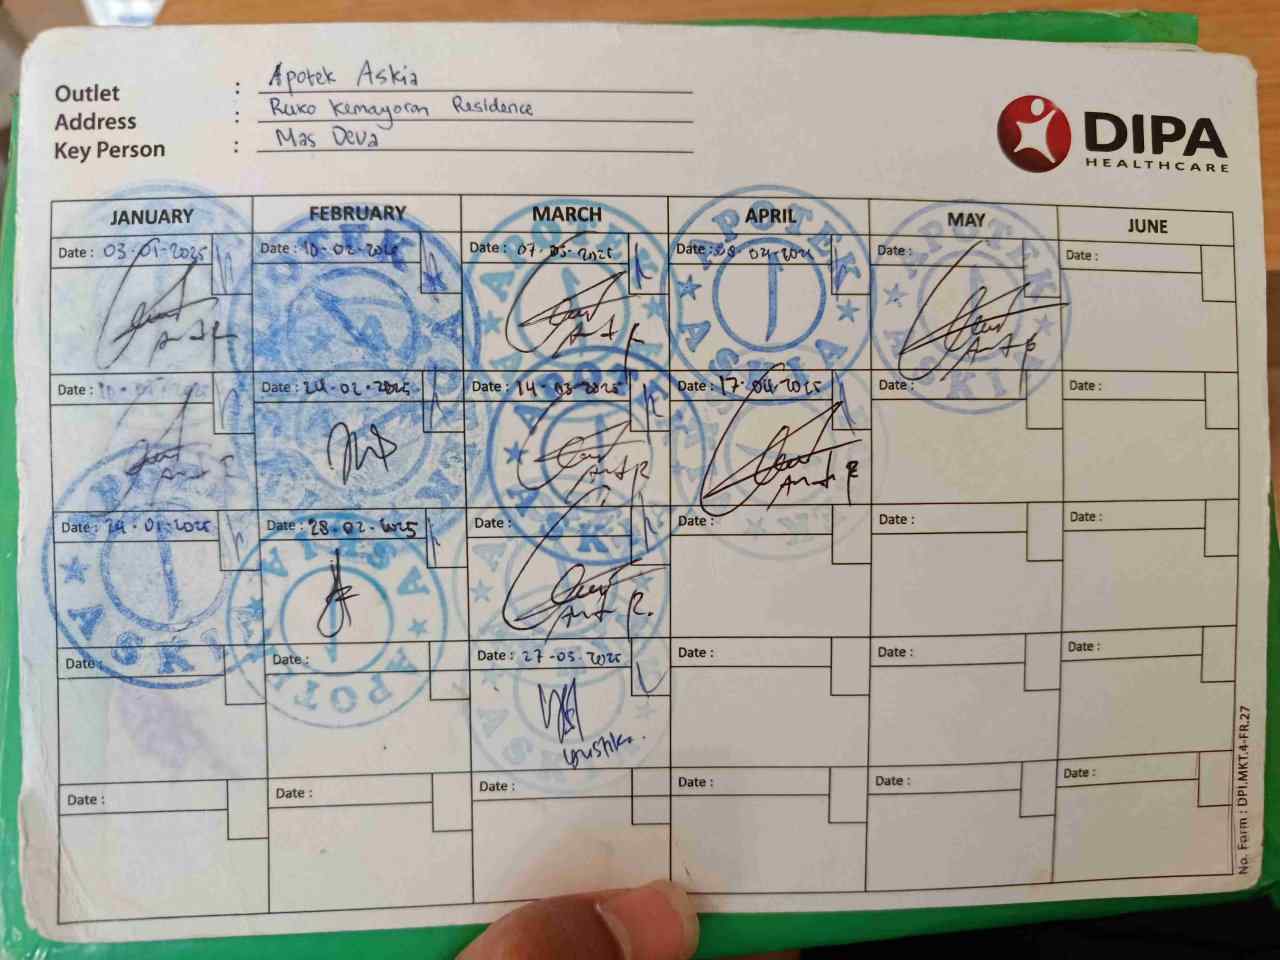 Outlet : Apotek Askia
Address : Ruko Kemayoran Residence
Key Person : Mas Deva
DIPA
HEALTHCARE
JANUARY FEBRUARY MARCH APRIL MAY JUNE
Date : 03-01-2025 Date : 10-02-2025 Date : 07-03-2025 Date : Date : Date :
Date : Date : 24-02-2025 Date : 14-03-2025 Date : 17-04-2025 Date : Date :
Date : 24-01-2025 Date : 28-02-2025 Date : Date : Date : Date :
Date : Date : Date : 27-03-2025 Date : Date : Date :
yustika.
Date : Date : Date : Date : Date : Date :
APOTEK ASKIA
No. Form : DPI.MKT.4-FR.27